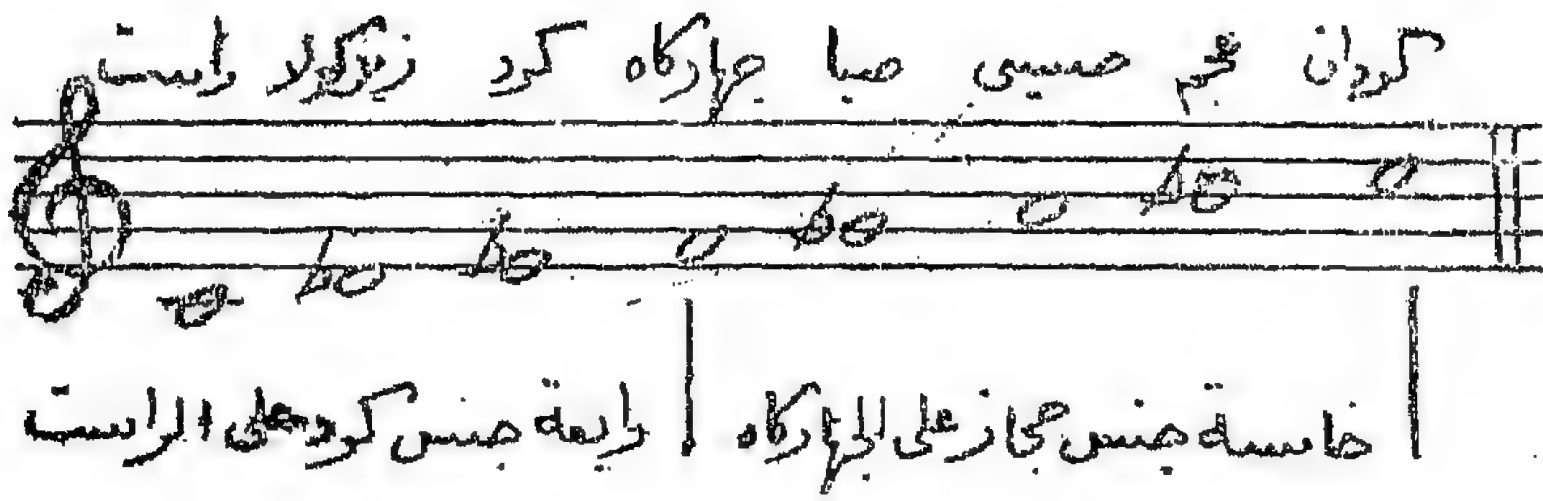 كردان عجم حسيني صبا جهاركاه كرد زيركولا راست
خامسة جنس حجاز على الجهاركاه رابعة جنس كرد على الراست